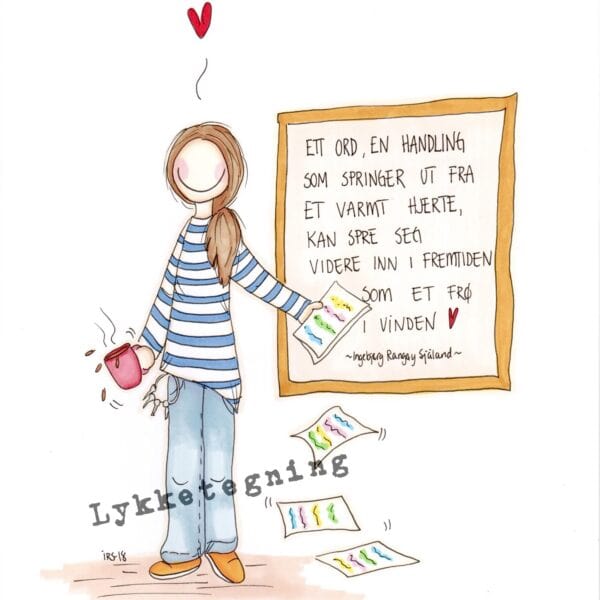 ETT ORD, EN HANDLING
SOM SPRINGER UT FRA
ET VARMT HJERTE,
KAN SPRE SEG
VIDERE INN I FREMTIDEN
SOM ET FRØ
I VINDEN
~Ingebjørg Rangøy Sjåland~
Lykketegning
IRS-18